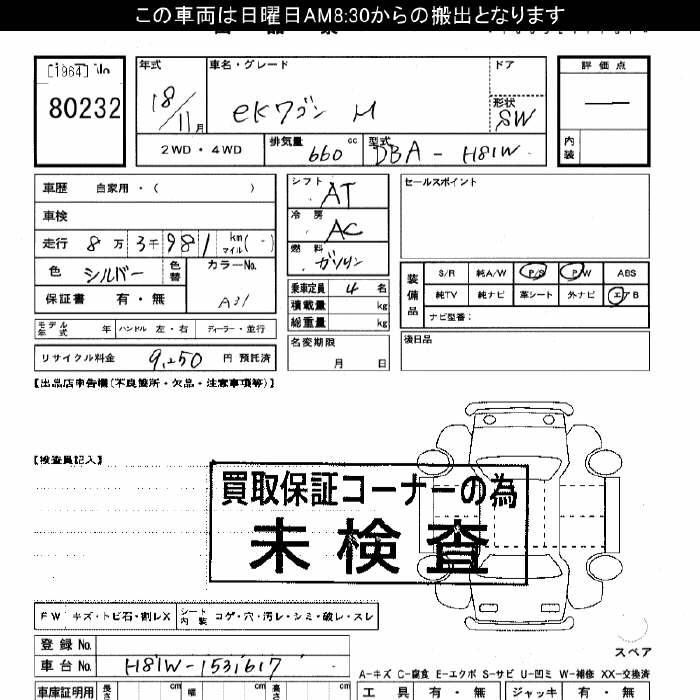 この車両は日曜日AM8:30からの搬出となります
[1964] No.
80232
年式
18/11月
車名・グレード
eKワゴン M
ドア
形状
SW
評価点
内装
2WD・4WD
排気量 660 cc
型式 DBA - H81W
車歴 自家用・( )
車検
走行 8万3千981 km マイル( - )
色 シルバー 色替 カラーNo. A31
保証書 有・無
シフト AT
冷房 AC
燃料 ガソリン
乗車定員 4 名
積載量 kg
総重量 kg
セールスポイント
装備品
S/R 純A/W P/S P/W ABS
純TV 純ナビ 革シート 外ナビ エアB
ナビ型番:
モデル年式 年 ハンドル 左・右 ディーラー・並行
リサイクル料金 9,250 円 預託済
名変期限 月 日
後日品
【出品店申告欄(不良箇所・欠品・注意事項等)】
【検査員記入】
買取保証コーナーの為
未検査
FW キズ・トビ石・割レX シート内装 コゲ・穴・汚レ・シミ・破レ・スレ
登録No.
車台No. H81W-1531617
スペア
A-キズ C-腐食 E-エクボ S-サビ U-凹ミ W-補修 XX-交換済
車庫証明用 長さ cm 幅 cm 高さ cm
工具 有・無 ジャッキ 有・無